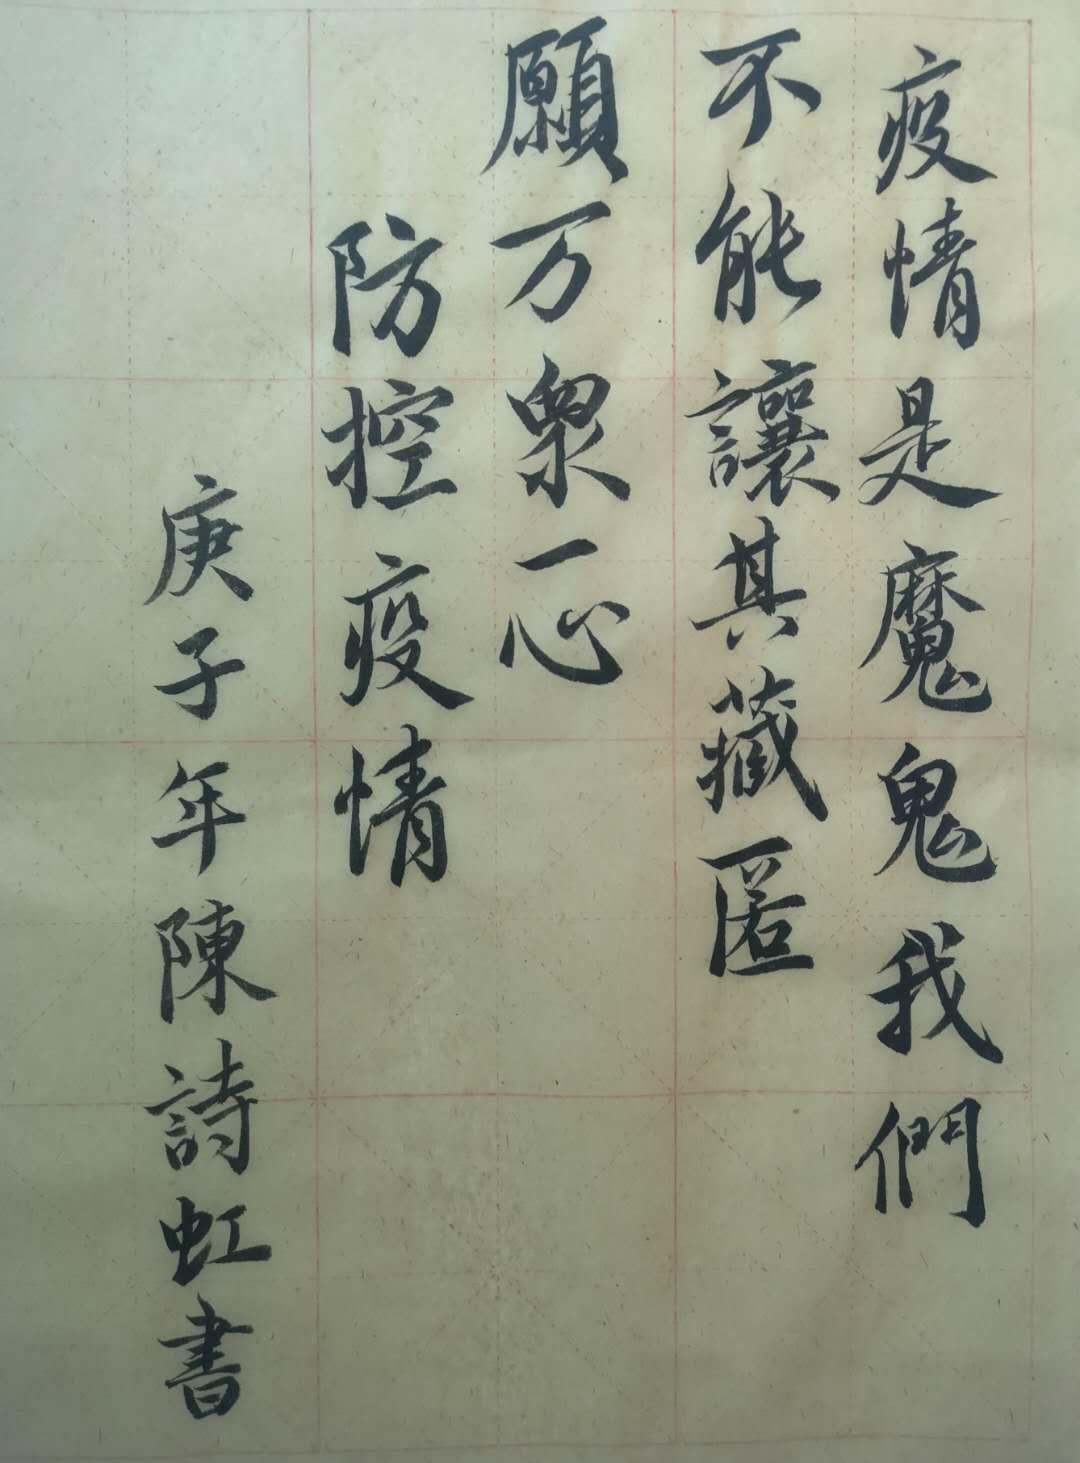 疫情是魔鬼我們
不能讓其藏匿
願万衆一心
防控疫情
庚子年陳詩虹書